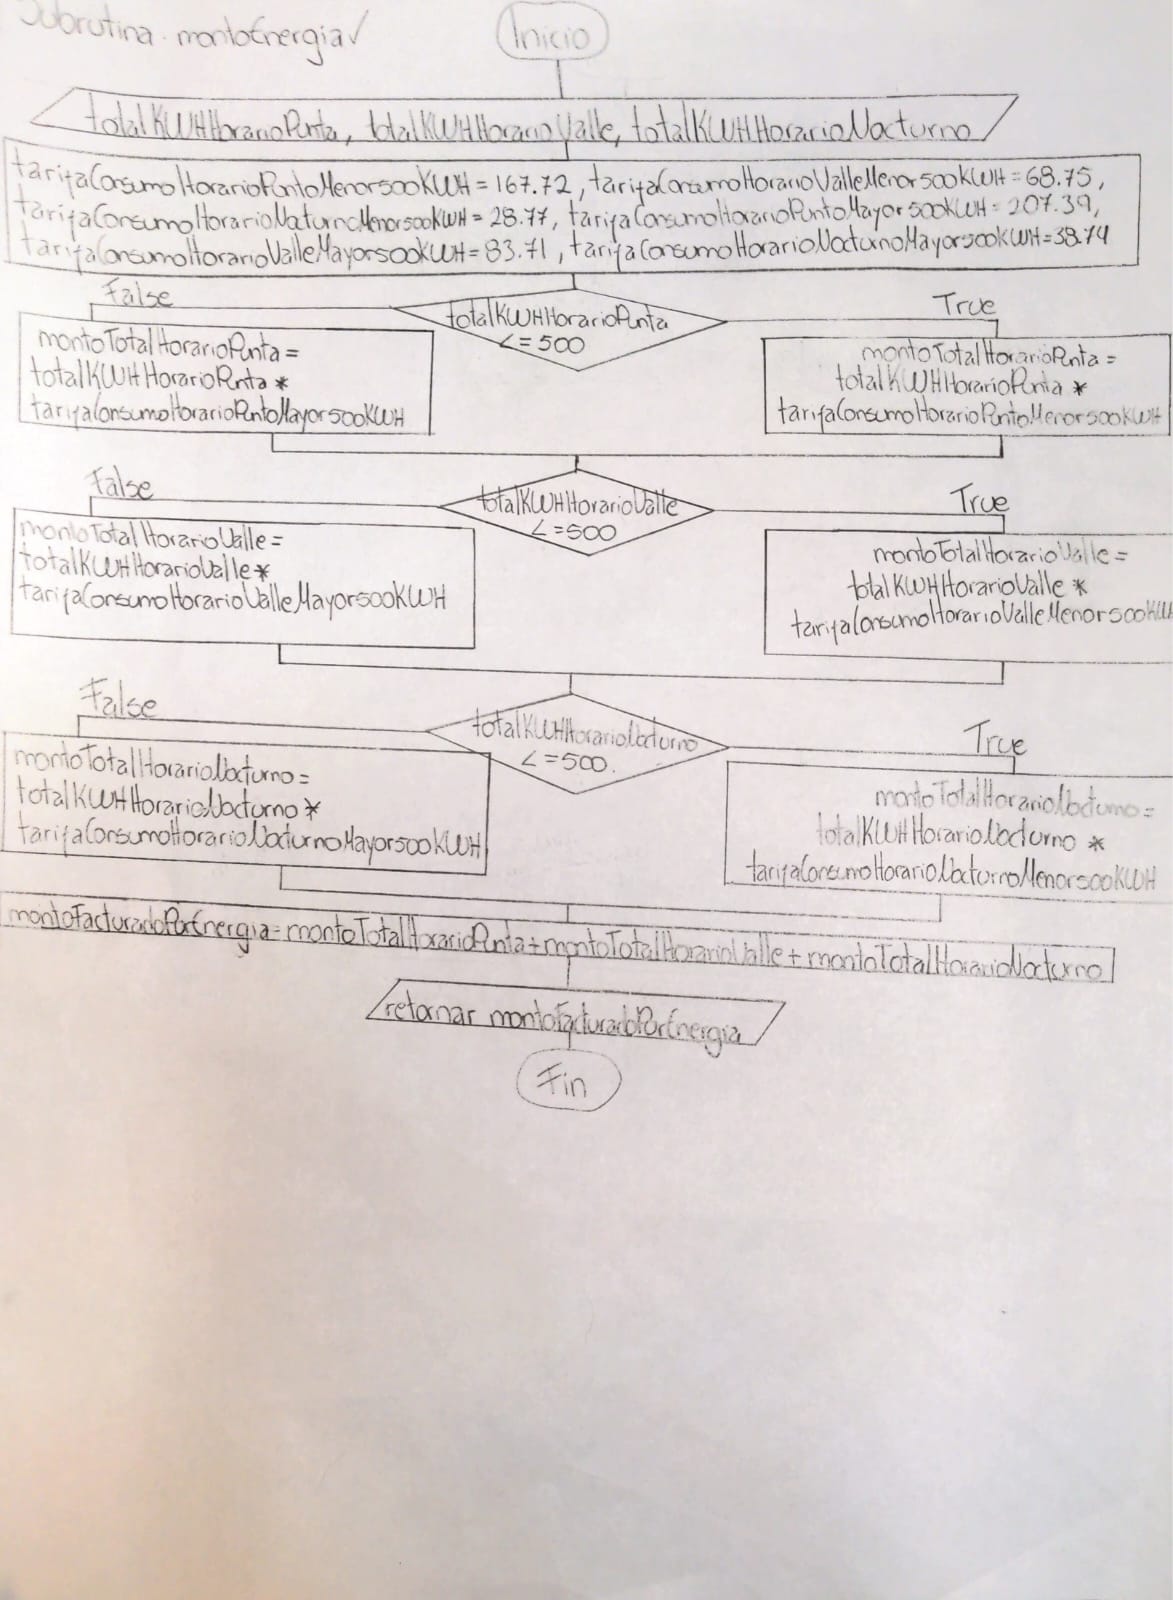 Subrutina. montoEnergia✓
Inicio
totalKWHHorarioPunta, totalKWHHorarioValle, totalKWHHorarioNocturno
tarifaConsumoHorarioPuntoMenor500KWH = 167.72, tarifaConsumoHorarioValleMenor500KWH = 68.75,
tarifaConsumoHorarioNocturnoMenor500KWH = 28.77, tarifaConsumoHorarioPuntoMayor500KWH = 207.39,
tarifaConsumoHorarioValleMayor500KWH = 83.71, tarifaConsumoHorarioNocturnoMayor500KWH = 38.74
False
totalKWHHorarioPunta
<= 500
True
montoTotalHorarioPunta =
totalKWHHorarioPunta *
tarifaConsumoHorarioPuntoMayor500KWH
montoTotalHorarioPunta =
totalKWHHorarioPunta *
tarifaConsumoHorarioPuntoMenor500KWH
False
totalKWHHorarioValle
<=500
True
montoTotalHorarioValle =
totalKWHHorarioValle *
tarifaConsumoHorarioValleMayor500KWH
montoTotalHorarioValle =
totalKWHHorarioValle *
tarifaConsumoHorarioValleMenor500KWH
False
totalKWHHorarioNocturno
<=500.
True
montoTotalHorarioNocturno =
totalKWHHorarioNocturno *
tarifaConsumoHorarioNocturnoMayor500KWH
montoTotalHorarioNocturno =
totalKWHHorarioNocturno *
tarifaConsumoHorarioNocturnoMenor500KWH
montoFacturadoPorEnergia = montoTotalHorarioPunta + montoTotalHorarioValle + montoTotalHorarioNocturno
retornar montoFacturadoPorEnergia
Fin